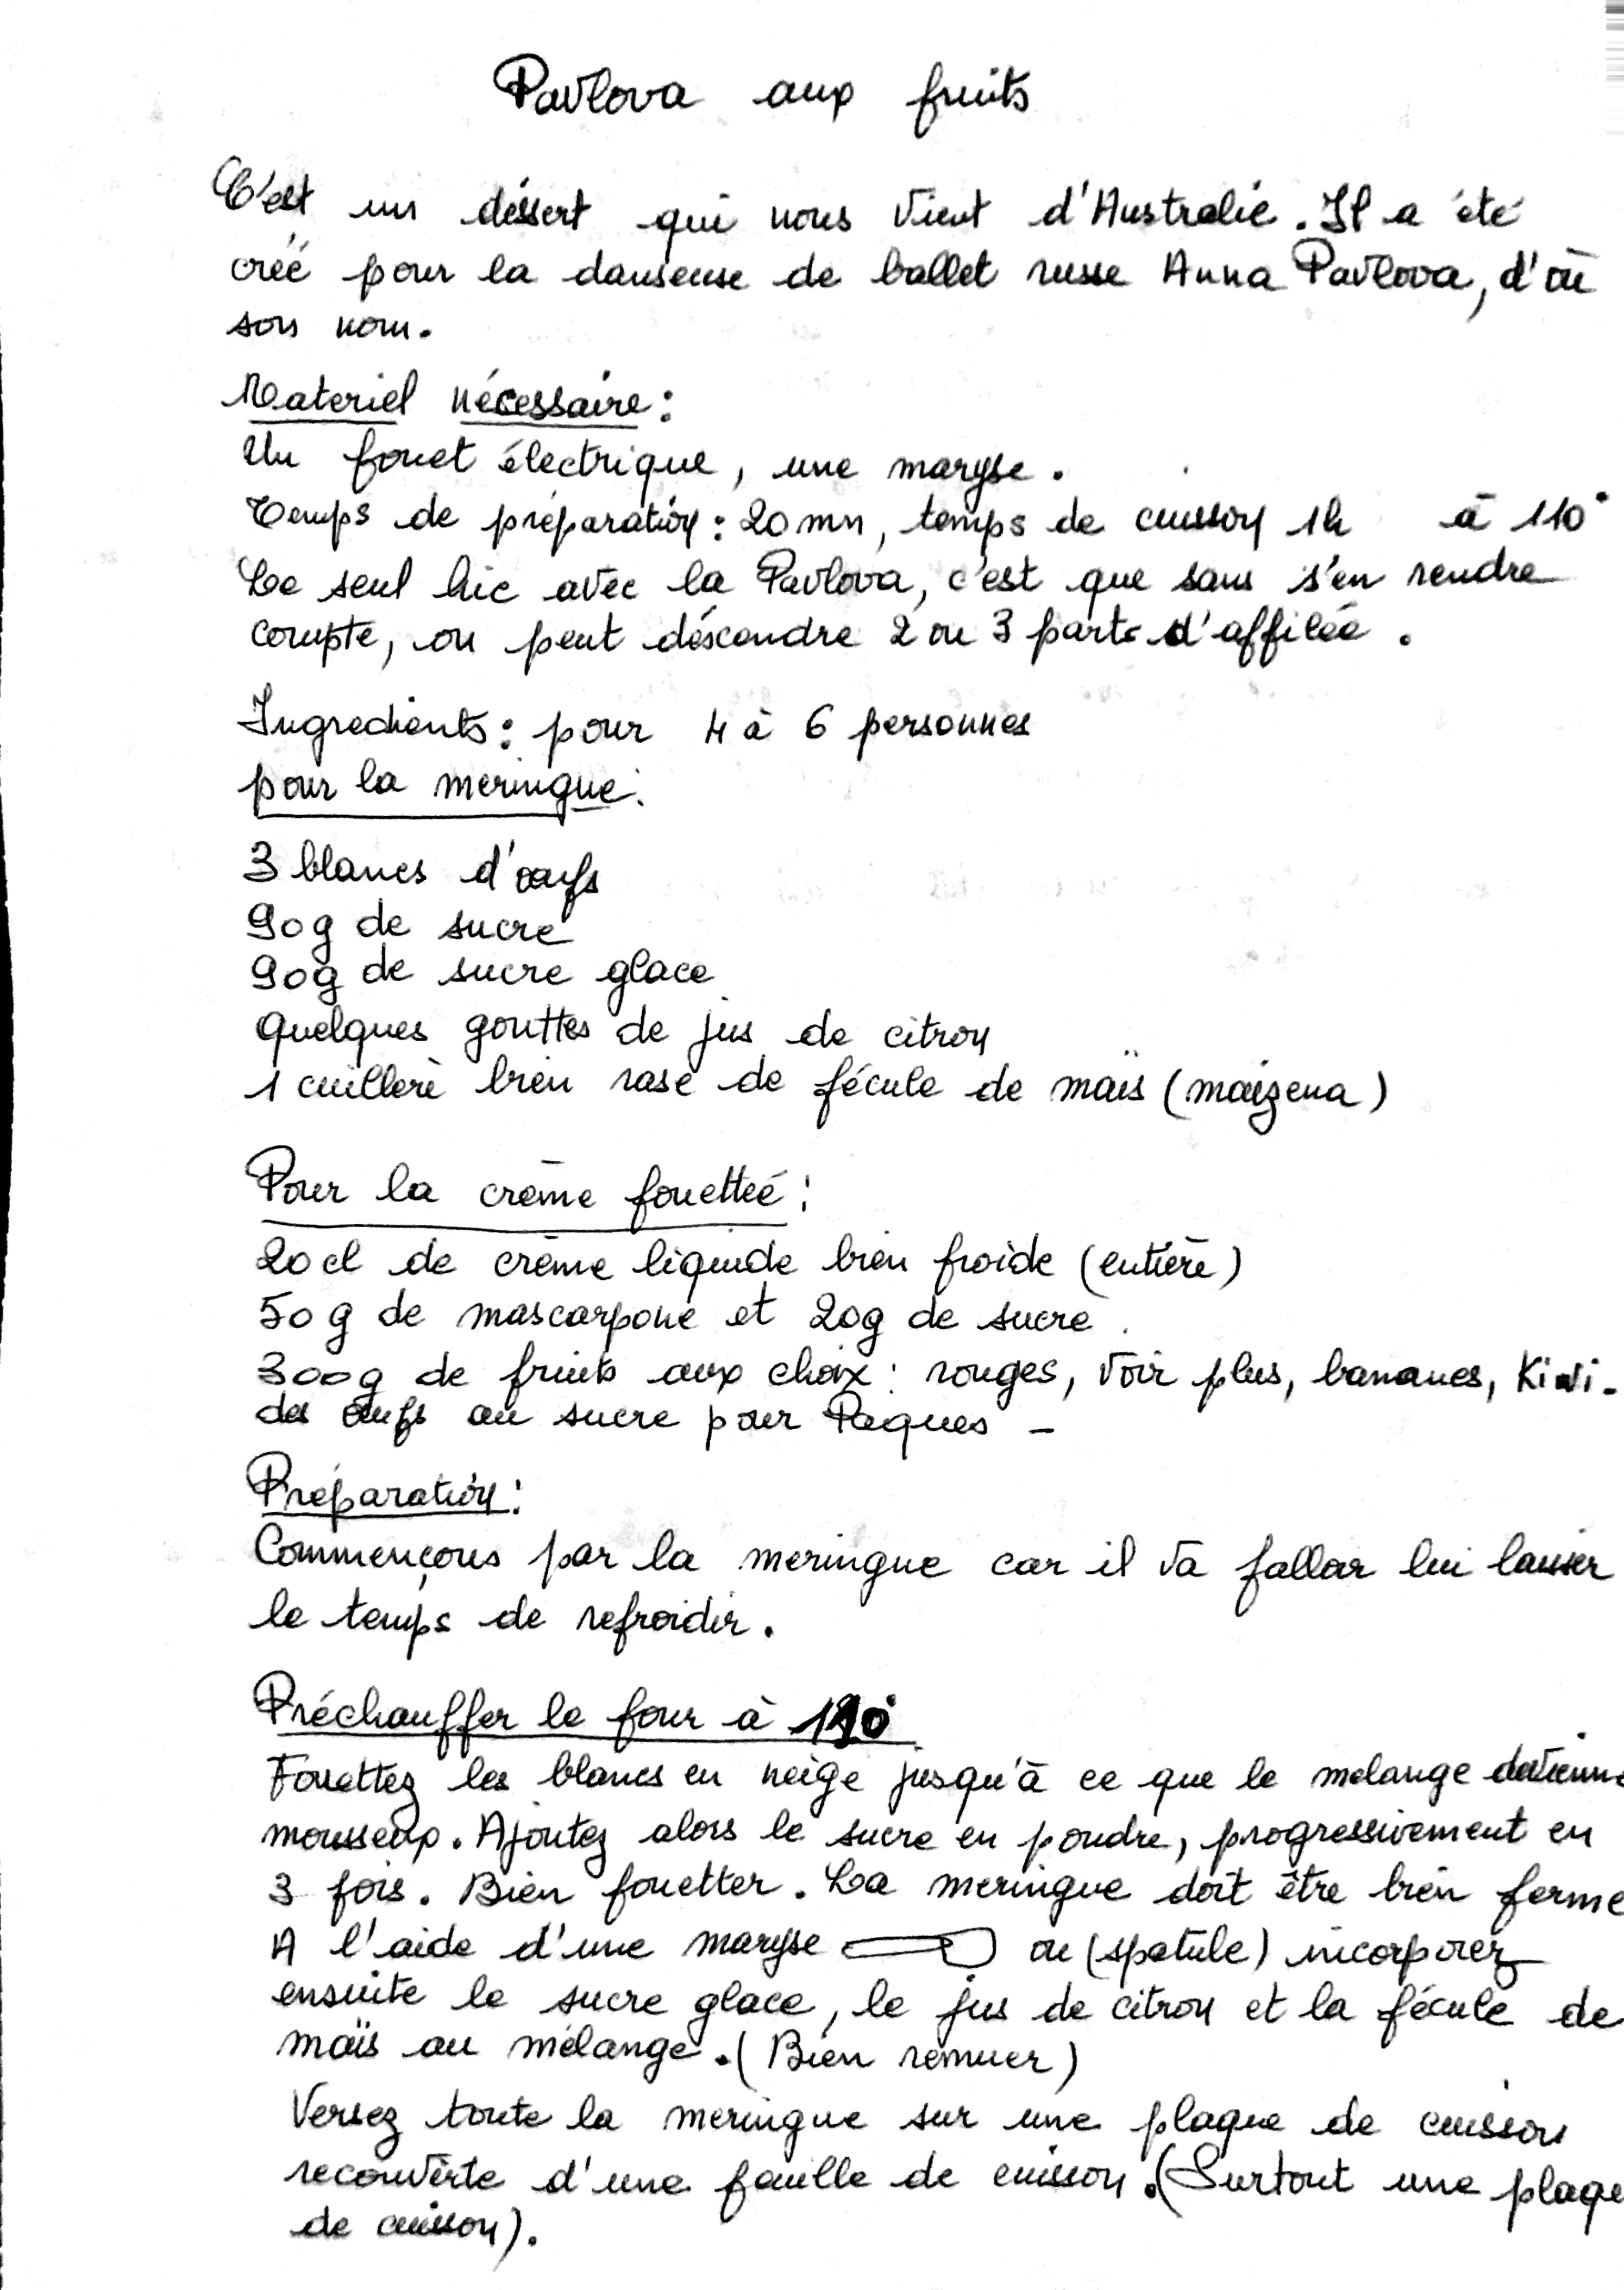 Pavlova aux fruits
C'est un déssert qui nous vient d'Australie. Il a été
créé pour la danseuse de ballet russe Anna Pavlova, d'où
son nom.
Materiel nécessaire :
Un fouet électrique, une maryse.
Temps de préparation : 20 mn, temps de cuisson 1h à 110°
Le seul hic avec la Pavlova, c'est que sans s'en rendre
compte, on peut déscendre 2 ou 3 parts d'affilée.
Ingredients : pour 4 à 6 personnes
pour la meringue :
3 blancs d'œufs
90g de sucre
90g de sucre glace
quelques gouttes de jus de citron
1 cuillerè bien rase de fécule de maïs (maïzena)
Pour la crème fouetteé :
20 cl de crème liquide bien froide (entière)
50 g de mascarpone et 20g de sucre
300g de fruits aux choix : rouges, voir plus, bananes, Kiwi.
des œufs au sucre pour Paques -
Préparation :
Commençons par la meringue car il va falloir lui laisser
le temps de refroidir.
Préchauffer le four à 110°
Fouettez les blancs en neige jusqu'à ce que le melange devienne
mousseux. Ajoutez alors le sucre en poudre, progressivement en
3 fois. Bien fouetter. La meringue doit être bien ferme
A l'aide d'une maryse ou (spatule) incorporez
ensuite le sucre glace, le jus de citron et la fécule de
maïs au mélange. (Bien remuer)
Versez toute la meringue sur une plaque de cuisson
recouverte d'une feuille de cuisson. (Surtout une plaque
de cuisson).